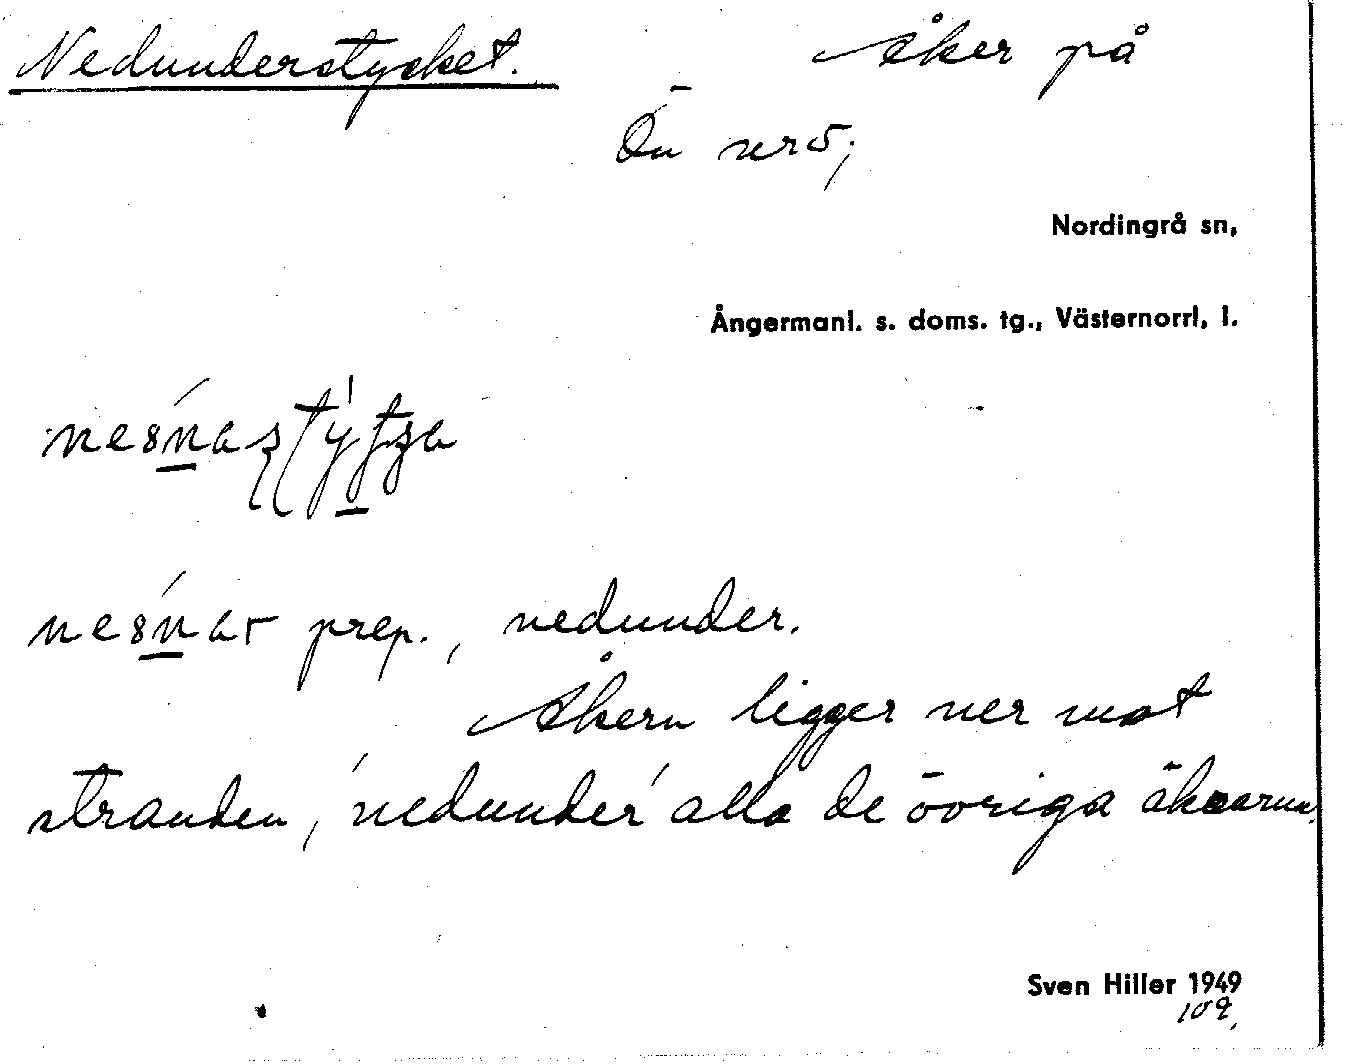 Nedunderstycket. Åker på
Ön nr 5;
Nordingrå sn,
Ångermanl. s. doms. tg., Västernorrl. l.
prep., nedunder.
Åkern ligger ner mot
stranden, 'nedunder' alla de övriga åkrarna.
Sven Hiller 1949
109.